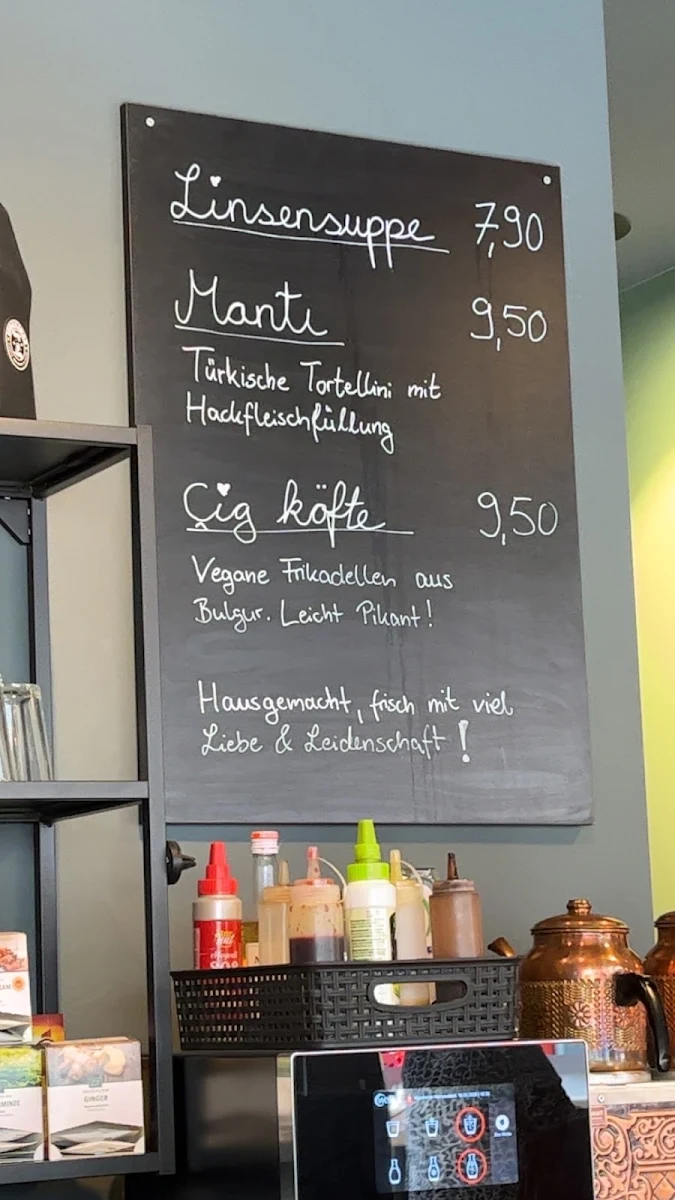 Linsensuppe 7,90
Mantı 9,50
Türkische Tortellini mit
Hackfleischfüllung
Çig köfte 9,50
Vegane Frikadellen aus
Bulgur. Leicht Pikant!
Hausgemacht, frisch mit viel
Liebe & Leidenschaft!
GINGER